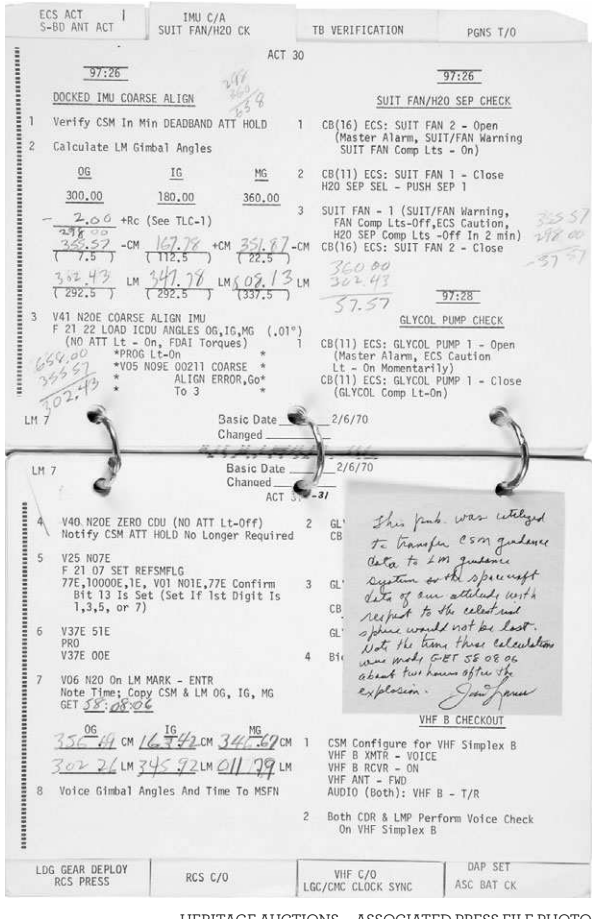 ECS ACT
S-BD ANT ACT
IMU C/A
SUIT FAN/H2O CK
TB VERIFICATION
PGNS T/O
ACT 30
97:26
DOCKED IMU COARSE ALIGN
298
360
658
1 Verify CSM In Min DEADBAND ATT HOLD
2 Calculate LM Gimbal Angles
OG IG MG
300.00 180.00 360.00
- 2.00 +Rc (See TLC-1)
298 00
355.57 -CM 167.78 +CM 351.87 -CM
( 7.5 ) (112.5 ) ( 22.5 )
302.43 LM 347.78 LM 008.13 LM
( 292.5 ) ( 292.5 ) (337.5 )
3 V41 N20E COARSE ALIGN IMU
F 21 22 LOAD ICDU ANGLES OG,IG,MG (.01°)
(NO ATT Lt - On, FDAI Torques)
*PROG Lt-On *
*V05 N09E 00211 COARSE *
* ALIGN ERROR,Go*
* To 3 *
658.00
355 57
302.43
97:26
SUIT FAN/H2O SEP CHECK
1 CB(16) ECS: SUIT FAN 2 - Open
(Master Alarm, SUIT/FAN Warning
SUIT FAN Comp Lts - On)
2 CB(11) ECS: SUIT FAN 1 - Close
H2O SEP SEL - PUSH SEP 1
3 SUIT FAN - 1 (SUIT/FAN Warning,
FAN Comp Lts-Off,ECS Caution,
H2O SEP Comp Lts -Off In 2 min)
CB(16) ECS: SUIT FAN 2 - Close
355 57
298 00
-57 57
360 00
302.43
57.57
97:28
GLYCOL PUMP CHECK
1 CB(11) ECS: GLYCOL PUMP 1 - Open
(Master Alarm, ECS Caution
Lt - On Momentarily)
CB(11) ECS: GLYCOL PUMP 1 - Close
(GLYCOL Comp Lt-On)
LM 7
Basic Date 2/6/70
Changed
LM 7
Basic Date 2/6/70
Changed
ACT 31
4 V40 N20E ZERO CDU (NO ATT Lt-Off)
Notify CSM ATT HOLD No Longer Required
5 V25 N07E
F 21 07 SET REFSMFLG
77E,10000E,1E, V01 N01E,77E Confirm
Bit 13 Is Set (Set If 1st Digit Is
1,3,5, or 7)
6 V37E 51E
PRO
V37E 00E
7 V06 N20 On LM MARK - ENTR
Note Time; Copy CSM & LM OG, IG, MG
GET 58:08:06
OG IG MG
356 69 CM 163 42 CM 346.67 CM
302 26 LM 345 92 LM 011 79 LM
8 Voice Gimbal Angles And Time To MSFN
2 GL
CB
3 GL
CB
GL
4 Bi
This pub. was utilized
to transfer CSM guidance
data to LM guidance
System so the spacecraft
data of our attitude with
respect to the celestial
sphere would not be lost.
Note the time these calculations
were made GET 58 08 06
about two hours after the
explosion.
VHF B CHECKOUT
1 CSM Configure for VHF Simplex B
VHF B XMTR - VOICE
VHF B RCVR - ON
VHF ANT - FWD
AUDIO (Both): VHF B - T/R
2 Both CDR & LMP Perform Voice Check
On VHF Simplex B
LDG GEAR DEPLOY
RCS PRESS
RCS C/O
VHF C/O
LGC/CMC CLOCK SYNC
DAP SET
ASC BAT CK
HERITAGE AUCTIONS — ASSOCIATED PRESS FILE PHOTO